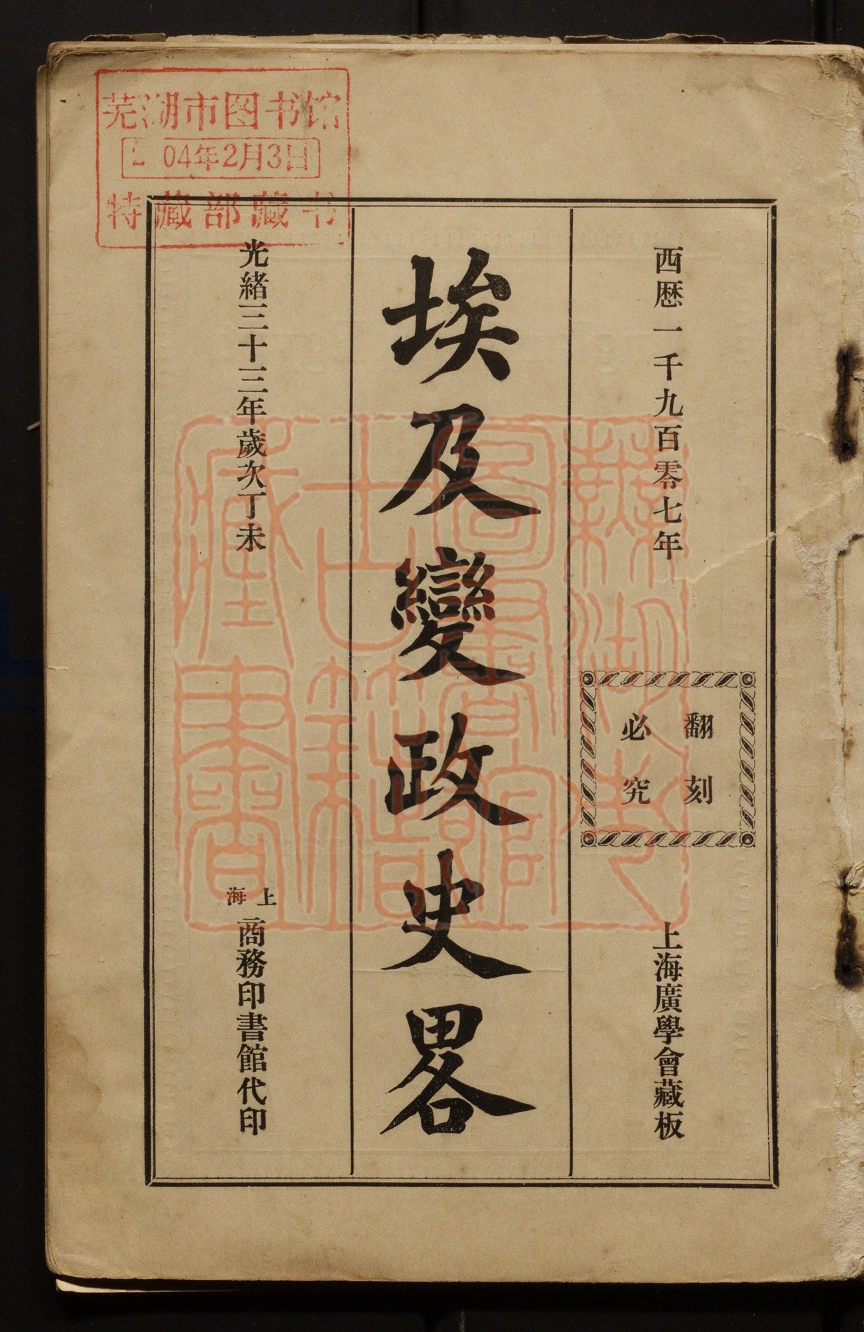 芜湖市图书馆
04年2月3日
特藏部藏书
西歷一千九百零七年
翻刻
必究
上海廣學會藏板
埃及變政史畧
光緒三十三年歲次丁未
上海
商務印書館代印
蕪湖市
圖書館
古籍
藏書